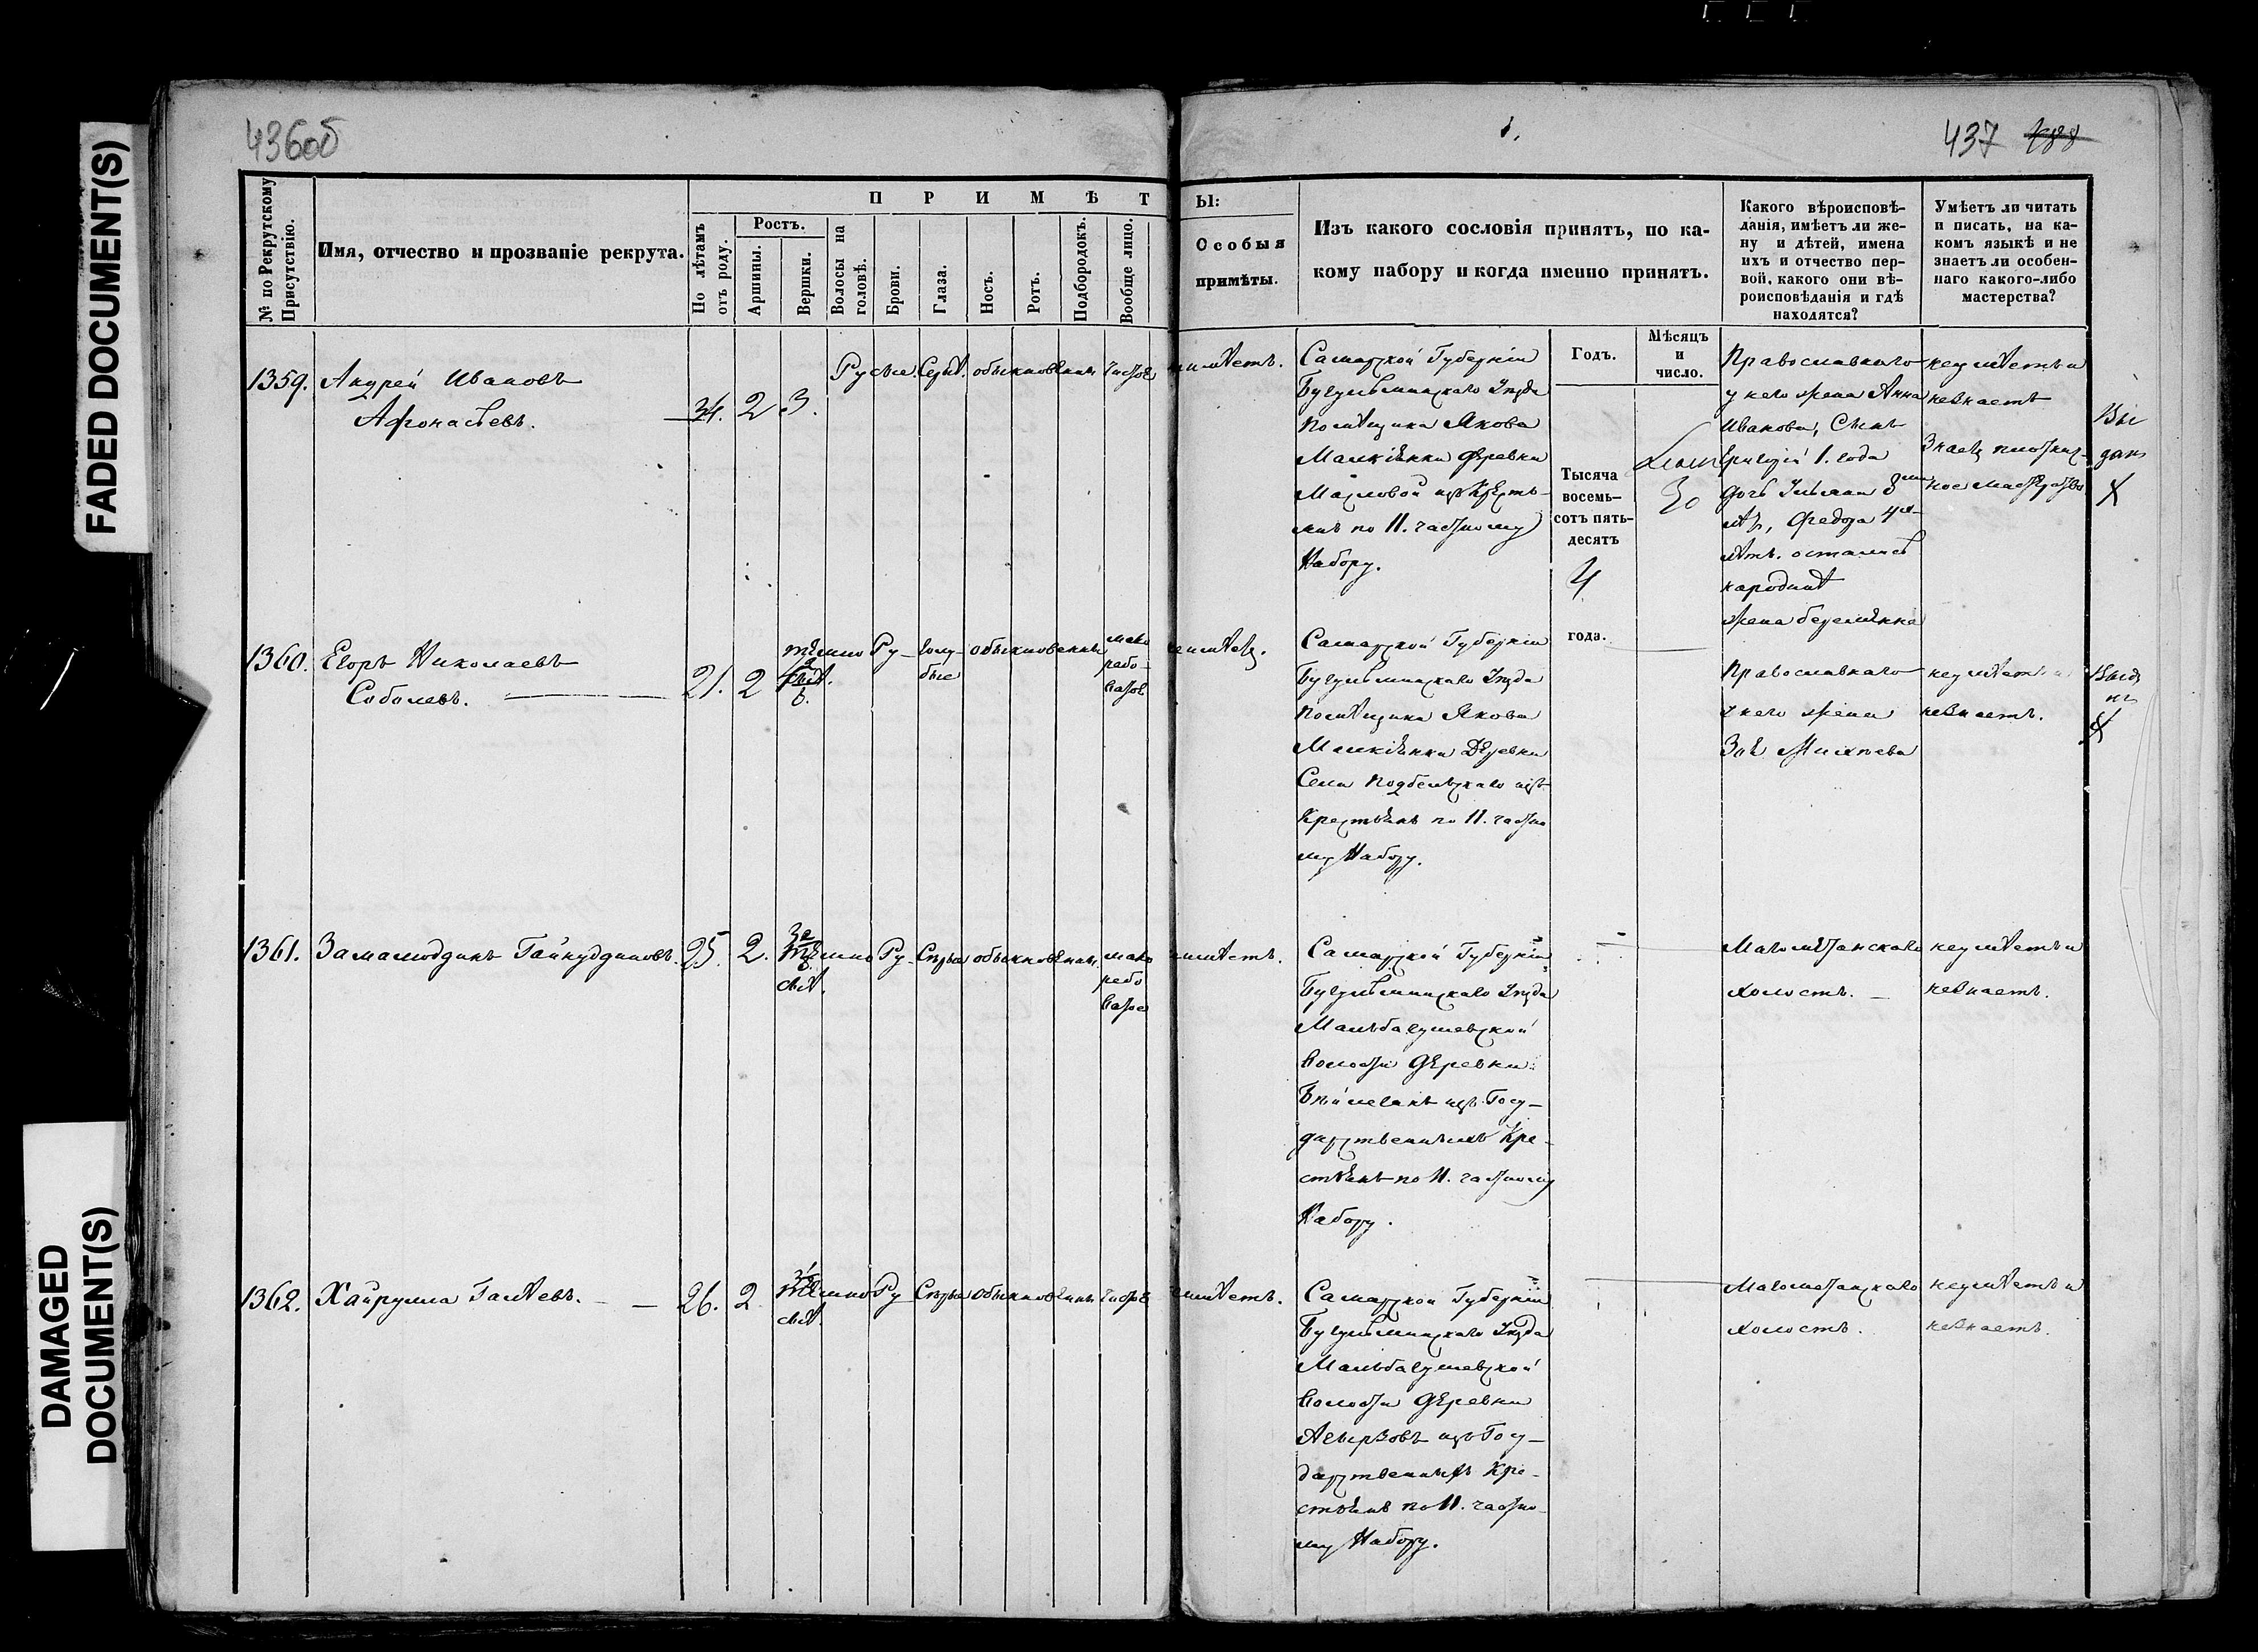 FADED DOCUMENT(S)
DAMAGED DOCUMENT(S)
436об
437
№ по Рекрутскому Присутствію.
Имя, отчество и прозваніе рекрута.
ПРИМѢТЫ:
По лѣтамъ отъ роду.
Ростъ.
Аршины.
Вершки.
Волосы на головѣ.
Брови.
Глаза.
Носъ.
Ротъ.
Подбородокъ.
Вообще лицо.
Особыя
примѣты.
Изъ какого сословія принятъ, по ка-
кому набору и когда именно принятъ.
Какого вѣроисповѣ-
данія, имѣетъ ли же-
ну и дѣтей, имена
ихъ и отчество пер-
вой, какого они вѣ-
роисповѣданія и гдѣ
находятся?
Умѣетъ ли читать
и писать, на ка-
комъ языкѣ и не
знаетъ ли особен-
наго какого-либо
мастерства?
Годъ.
Мѣсяцъ
и
число.
Тысяча
восемь-
сотъ пять-
десятъ
4
года.
30
1359.
Андрей Ивановъ
Афонасьевъ.
34. 2 3.
Русые. Серы. обыкновенны чистое
неимѣетъ.
Самарской Губерніи
Бугульминскаго Уѣзда
Помѣщика Якова
деревни
Масловой изъ Кресть-
янъ по 11. частному
Набору.
Православнаго
у него жена Анна
Иванова, Сынъ
Григорій 1. года
дочь
лѣтъ. остались
народинѣ
жена беременна
неумѣетъ и
незнаетъ
Знаетъ плотнич-
ное мастерство
Вы
данъ
X
1360.
Егоръ Николаевъ
Соболевъ.
21. 2
темно Ру-
голу-
бые
обыкновенны
мало
рябо-
ватое
неимѣетъ.
Самарской Губерніи
Бугульминскаго Уѣзда
Помѣщика Якова
Деревни
Села Подбельскаго изъ
Крестьянъ по 11. частно
му Набору.
Православнаго
у него жена
неумѣетъ и
незнаетъ.
X
1361.
Замалюдинъ Гайнудиновъ.
25. 2.
темно Ру-
свѣт.
Серые обыкновенны.
мало
рябо
ватое
неимѣетъ.
Самарской Губерніи
Бугульминскаго Уѣзда
Мальбагушевской
волости деревни
изъ Госу-
дарственныхъ Кре-
стьянъ по 11. частному
Набору.
Магометанскаго
холостъ.
неумѣетъ и
незнаетъ.
1362.
Хайрулла Галѣевъ.
26. 2
темно Ру
свѣт.
Серые обыкновенны чистое
неимѣетъ.
Самарской Губерніи
Бугульминскаго Уѣзда
Мальбагушевской
волости деревни
изъ Госу-
дарственныхъ Кре-
стьянъ по 11. частно-
му Набору.
Магометанскаго
холостъ.
неумѣетъ и
незнаетъ.